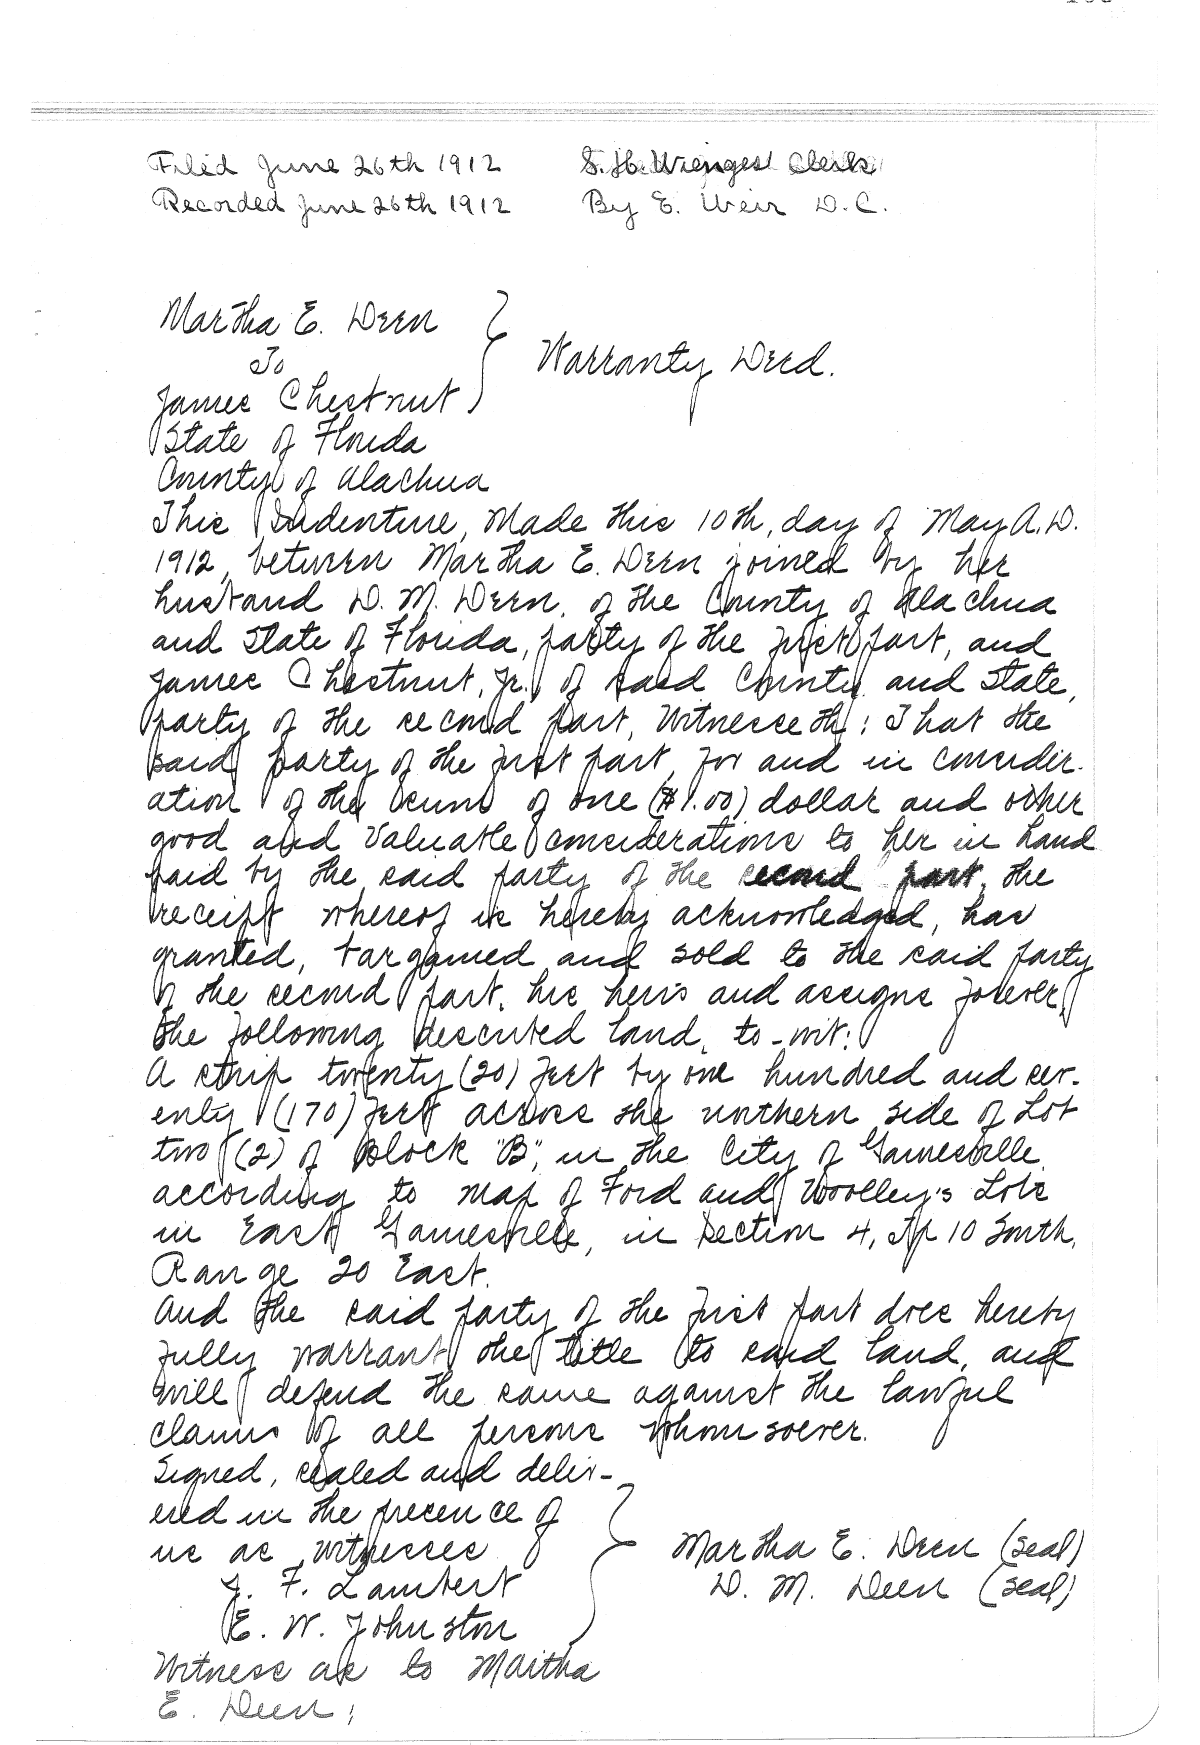 Filed June 26th 1912 S. H. Wienges Clerk
Recorded June 26th 1912 By E. Weir D.C.
Martha E. Deen
To
Warranty Deed.
James Chestnut
State of Florida
County of Alachua
This Indenture, Made this 10th, day of May A.D.
1912, between Martha E. Deen joined by her
husband D. M. Deen, of the County of Alachua
and State of Florida, party of the first part, and
James Chestnut, Jr., of said County and State,
party of the second part, Witnesseth: That the
said party of the first part, for and in consider-
ation of the sum of one ($1.00) dollar and other
good and valuable considerations to her in hand
paid by the said party of the second part, the
receipt whereof is hereby acknowledged, has
granted, bargained and sold to the said party
of the second part, his heirs and assigns forever,
the following described land, to-wit:
A strip twenty (20) feet by one hundred and sev-
enty (170) feet across the northern side of Lot
two (2) of Block "B", in the City of Gainesville
according to map of Ford and Woolley's Lots
in East Gainesville, in Section 4, Tp 10 South,
Range 20 East.
And the said party of the first part does hereby
fully warrant the title to said land, and
will defend the same against the lawful
claims of all persons whomsoever.
Signed, sealed and deliv-
ered in the presence of
us as witnesses
Martha E. Deen (seal)
J. F. Lambert
D. M. Deen (seal)
E. W. Johnston
Witness as to Martha
E. Deen;